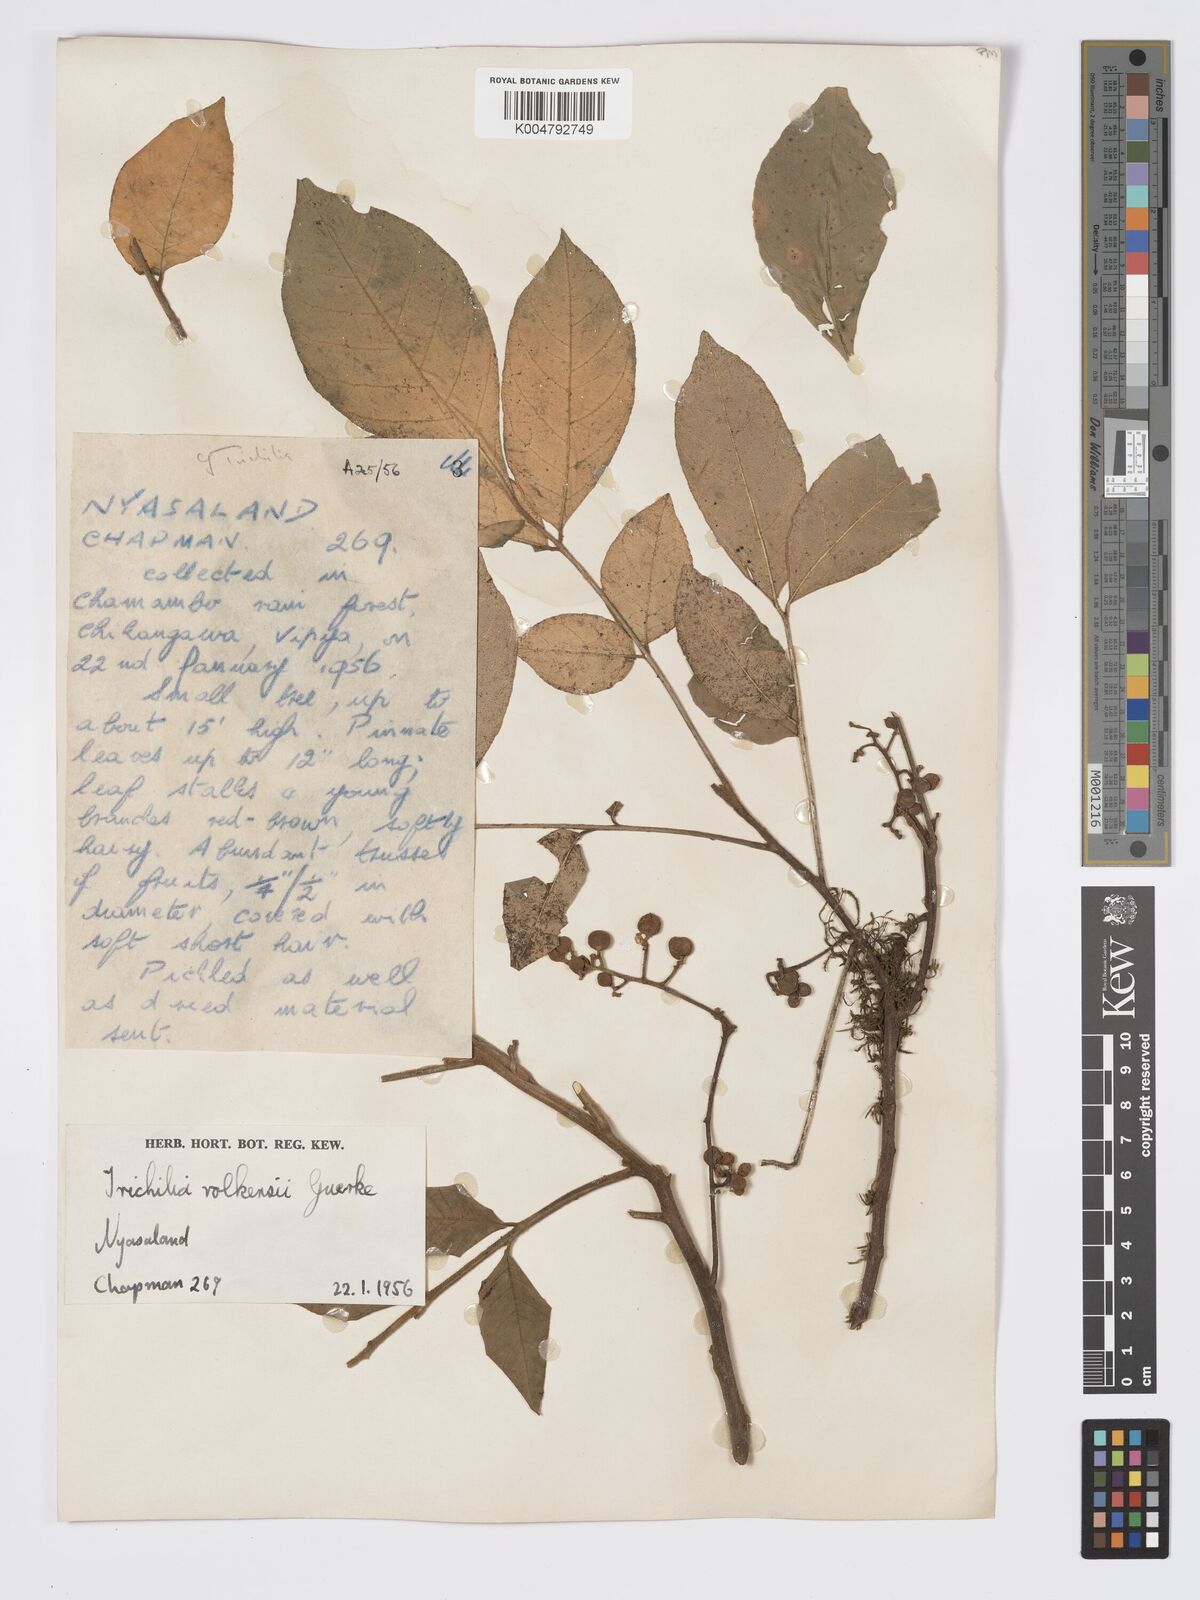 ROYAL BOTANIC GARDENS KEW
K004792749
cf Trichilia
A25/56
NYASALAND
CHAPMAN 269.
collected in
Chamambo rain forest,
Chikangawa, Vipya, on
22nd January 1956
Small tree, up to
about 15' high. Pinnate
leaves up to 12" long;
leaf stalks & young
branches red-brown, softly
hairy. Abundant trusses
of fruits, ¼"/½" in
diameter, covered with
soft short hair.
Pickled as well
as dried material
sent.
HERB. HORT. BOT. REG. KEW.
Trichilia volkensii Guerke
Nyasaland
Chapman 269 22.1.1956
inches
centimeters
Density
Don Williams
M001216
Royal Botanic Gardens
Kew
copyright reserved
0 1 2 3 4 5 6 7 8 9 10
cm